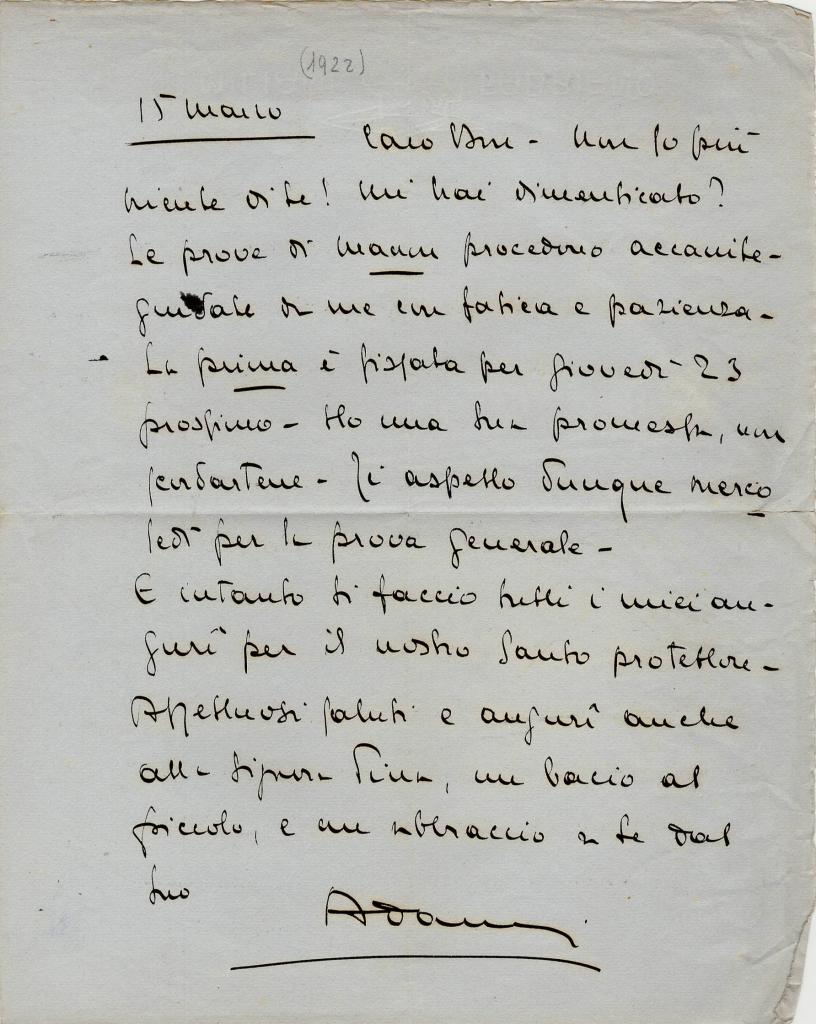 (1922)
15 marzo
Caro - Non so più
niente di te! Mi hai dimenticato?
Le prove di Manon procedono accanite -
guidate da me con fatica e pazienza -
La prima è fissata per giovedì 23
prossimo - Ho una tua promessa, non
scordartene - Ti aspetto dunque merco
ledì per la prova generale -
E intanto ti faccio tutti i miei au-
gurî per il nostro Santo protettore -
Affettuosi saluti e augurî anche
alla Signora Tina, un bacio al
piccolo, e un abbraccio a te dal
tuo
Adami